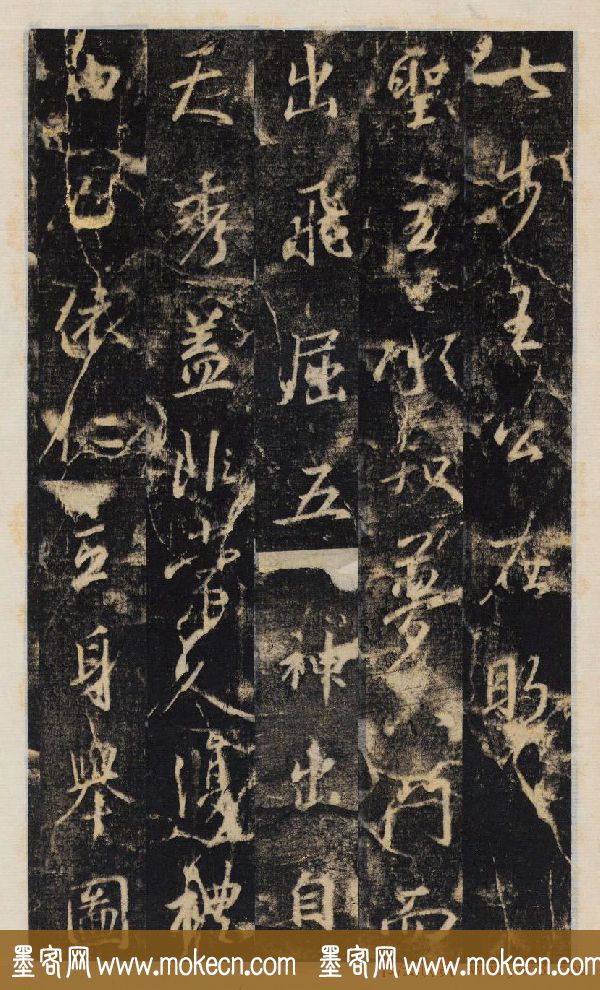 七步王公在
聖主夢門而
出飛屈五神出自
天秀蓋非常人禮
由己依仁立身舉圖
墨客网 www.mokecn.com 墨客网 www.mokecn.com